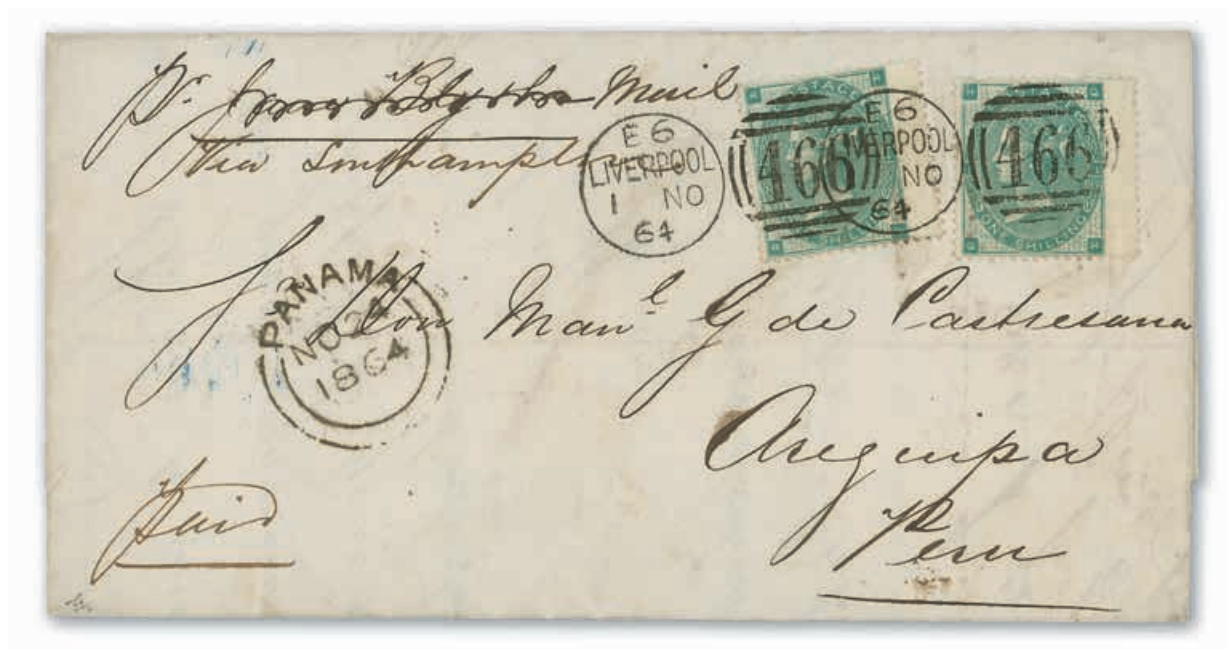 Pr. Mail
Via Southampton
E 6
LIVERPOOL
1 NO
64
466
E 6
LIVERPOOL
NO
64
466
POSTAGE
ONE SHILLING
ONE SHILLING
PANAMA
NO 24
1864
Don Manl. G de Castresana
Arequipa
Peru
Paid